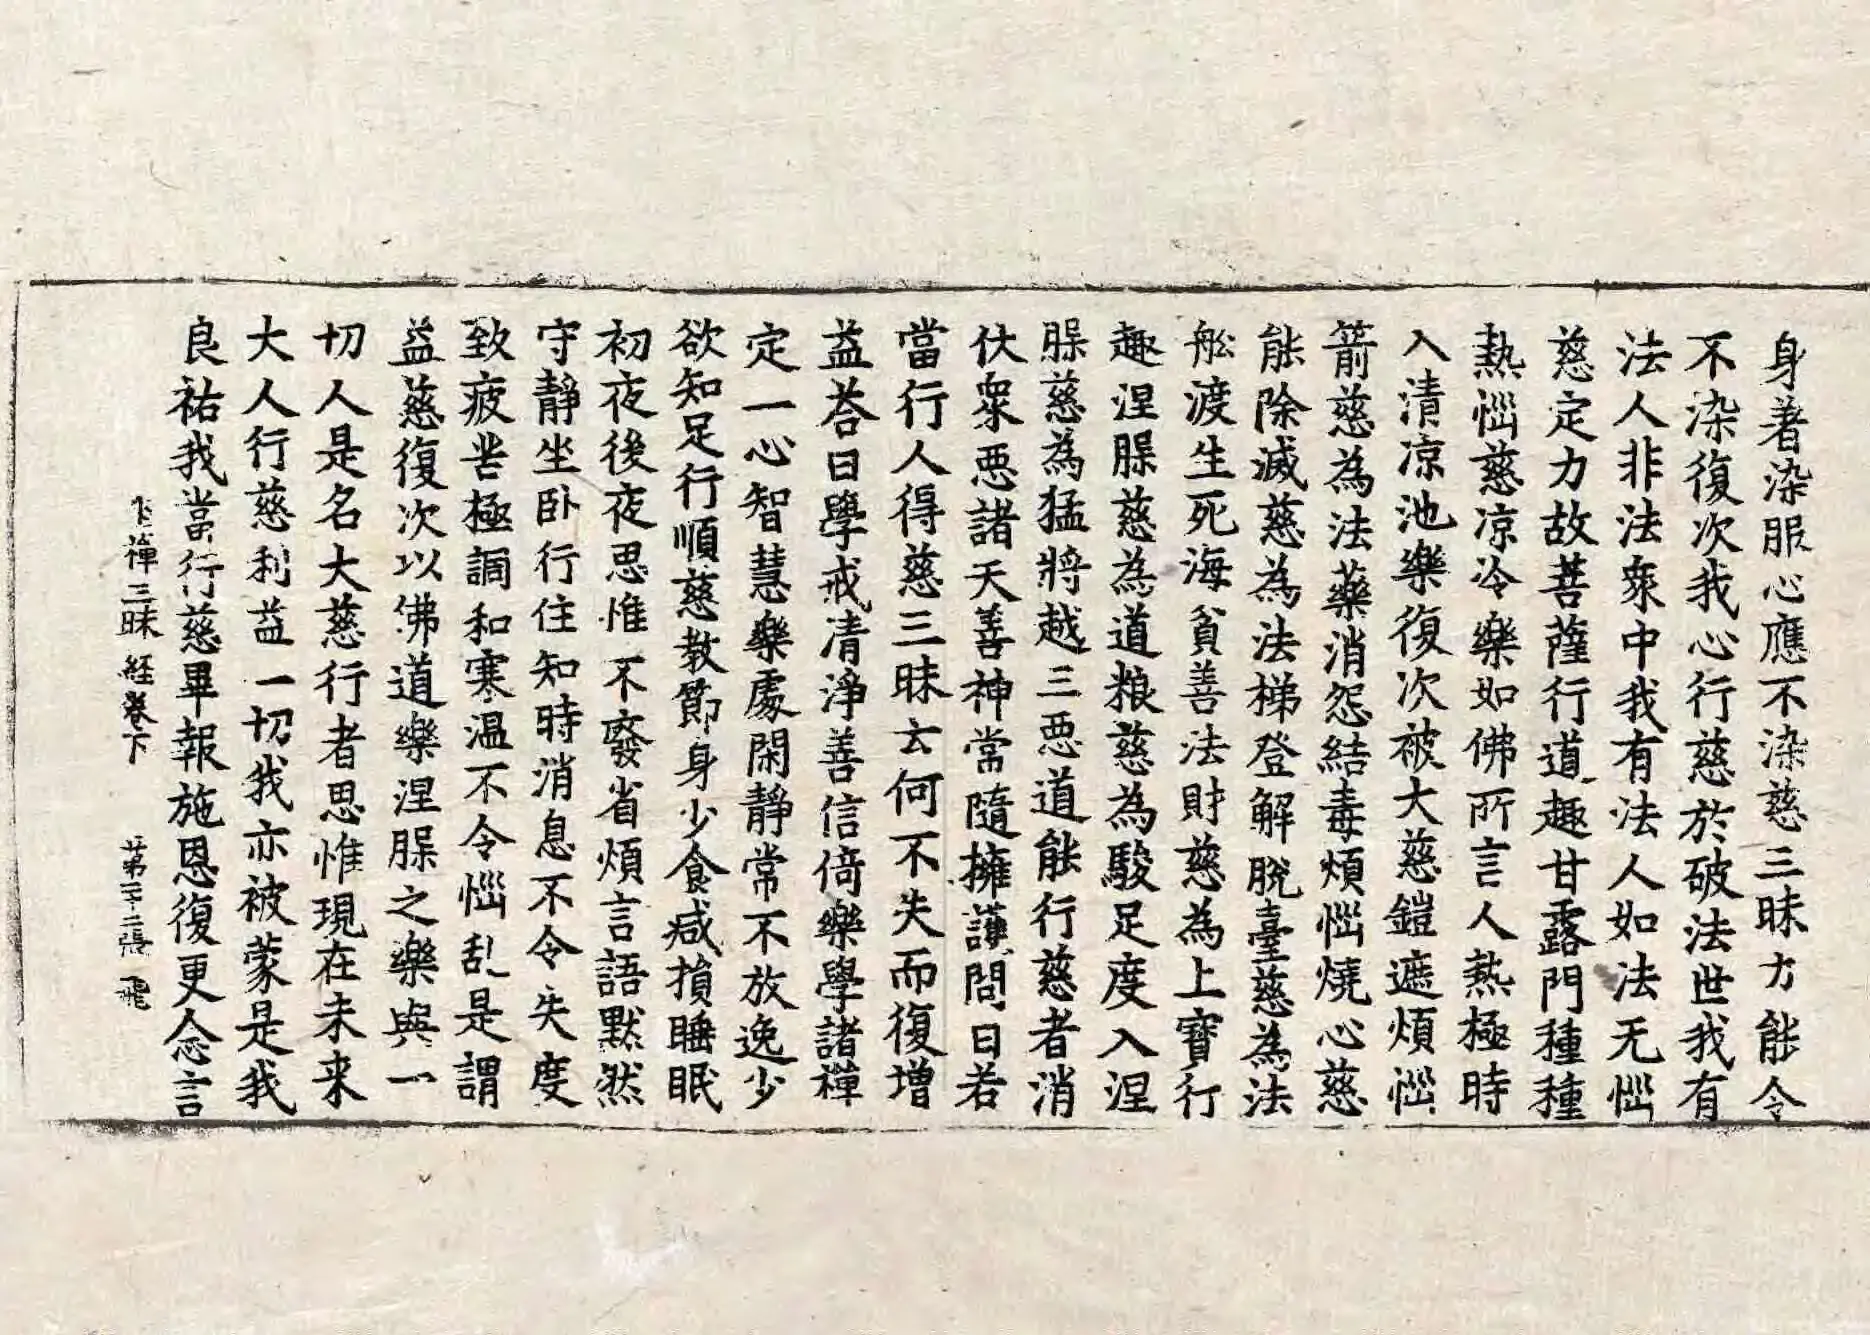 身著染服心應不染慈三昧力能令
不染復次我心行慈於破法世我有
法人非法衆中我有法人如法无惱
慈定力故菩薩行道趣甘露門種種
熱惱慈凉冷樂如佛所言人熱極時
入清凉池樂復次被大慈鎧遮煩惱
箭慈為法藥消怨結毒煩惱燒心慈
能除滅慈為法梯登解脫臺慈為法
舩渡生死海貧善法財慈為上寶行
趣涅槃慈為道粮慈為駿足度入涅
槃慈為猛將越三悪道能行慈者消
伏衆悪諸天善神常隨擁護問曰若
當行人得慈三昧云何不失而復增
益荅曰學戒清淨善信倚樂學諸禪
定一心智慧樂處閑靜常不放逸少
欲知足行順慈教節身少食減損睡眠
初夜後夜思惟不廢省煩言語默然
守靜坐卧行住知時消息不令失度
致疲苦極調和寒温不令惱乱是謂
益慈復次以佛道樂涅槃之樂與一
切人是名大慈行者思惟現在未来
大人行慈利益一切我亦被蒙是我
良祐我當行慈畢報施恩復更念言
禪三昧経卷下 張